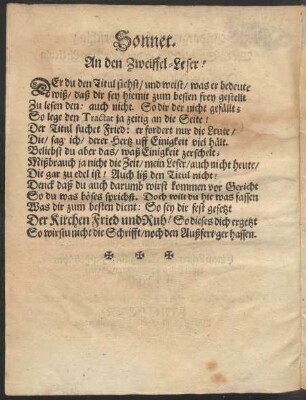 Sonnet.
An den Zweiffel-Leser!
DEr du den Titul siehst/ und weist/ was er bedeute
Gwiß/ daß dir sey hiemit zum besten frey gestellt
Zu lesen den: auch nicht. So dir der nicht gefällt:
So lege den Tractat ja zeitig an die Seite!
Der Titul suchet Fried: er fordert nur die Leute/
Die/ sag ich/ derer Hertz uff Einigkeit viel hält.
Beliebst du aber das/ waß Einigkeit zerschelt:
Mißbrauch ja nicht die Zeit/ mein Leser/ auch nicht heute/
Die gar zu edel ist! Auch liß den Titul nicht:
Denck daß du auch darumb wirst kommen vor Gericht
So du was böses sprichst. Doch wilt du hie was fassen
Was dir zum besten dient: So sey dir fest gesetzt
Der Kirchen Fried und Ruh/ So dieses dich ergetzt
So wirstu nicht die Schrifft/ noch den Außfertger hassen.